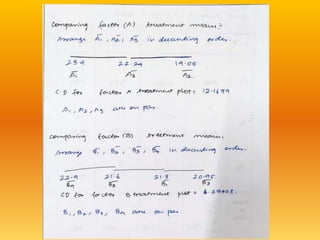 Comparing factor (A) treatment means:-
Arrange A̅₁, A̅₂, A̅₃ in descending order.
23.9 22.29 19.05
A̅₁ A̅₃ A̅₂
C.D for factor A treatment plot = 12.1699
A₁, A₂, A₃ are on par.
Comparing factor (B) treatment means.
Arrange B̅₁, B̅₂, B̅₃, B̅₄ in descending order.
22.9 21.6 21.3 20.95
B̅₄ B̅₂ B̅₁ B̅₃
CD for factor B treatment plot = 6.29403.
B₁, B₂, B₃, B₄ are on par.